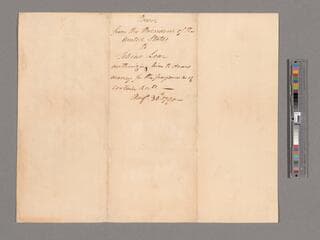 Power
from the President of the
United States
to
Tobias Lear
authorizing him to draw
money for the purposes of
certain Acts —
Augt 30th 1790